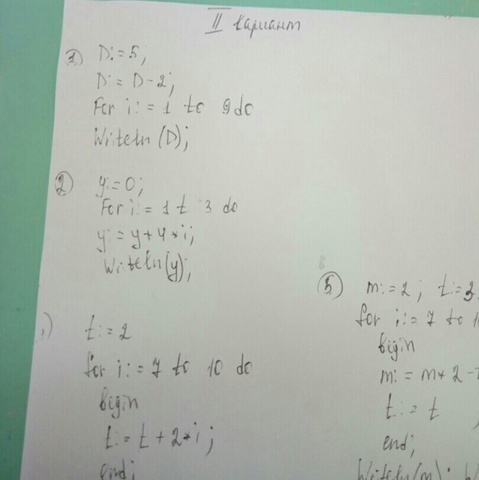 II вариант
1) D:=5;
D:= D-2;
For i:=1 to 9 do
Writeln(D);
2) y:=0;
For i:=1 t 3 do
y:=y+4*i;
Writeln(y);
t:=2
for i:=7 to 10 do
begin
t:=t+2*i;
end;
5) m:=2; t:=3,
for i:=7 to 1
begin
m:=m*2-
t:=t ;
end;
Writeln(m);